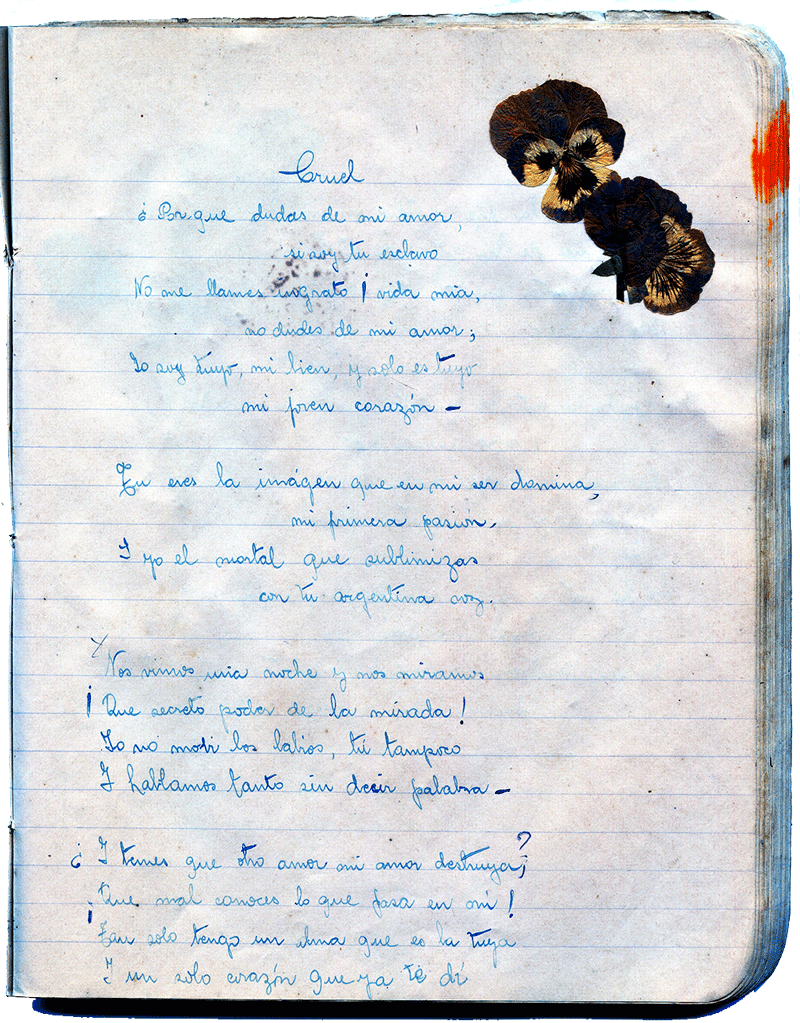 Cruel
¿ Por que dudas de mi amor,
si soy tu esclavo
No me llames ingrato ¡ vida mia,
no dudes de mi amor;
Yo soy tuyo, mi bien, y solo es tuyo
mi joven corazón –
Tu eres la imágen que en mi ser domina,
mi primera pasión.
Y yo el mortal que sublimizas
con tu argentina voz.
Nos vimos una noche y nos miramos
¡ Que secreto poder de la mirada !
Yo no moví los labios, tú tampoco
Y hablamos tanto sin decir palabra –
¿ Y temes que otro amor mi amor destruya?,
¡ Que mal conoces lo que pasa en mi !
Tan solo tengo un alma que es la tuya
Y un solo corazón que ya té dí